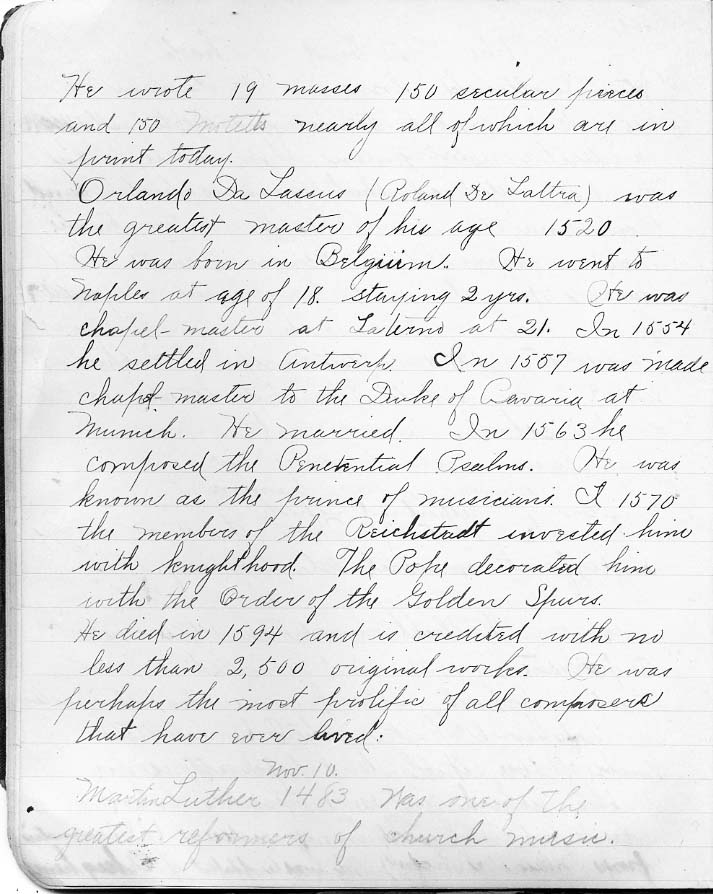 He wrote 19 masses 150 secular pieces
and 150 Motetts nearly all of which are in
print today.
Orlando Da Lassus (Roland De Lattra) was
the greatest master of his age 1520
He was born in Belguim. He went to
Naples at age of 18. staying 2 yrs. He was
chapel-master at Laterno at 21. In 1554
he settled in Antwerp. In 1557 was made
chapel-master to the Duke of Bavaria at
Munich. He married. In 1563 he
composed the Penetential Psalms. He was
known as the prince of musicians. I 1570
the members of the Reichstadt invested him
with knighthood. The Pope decorated him
with the Order of the Golden Spurs.
He died in 1594 and is credited with no
less than 2,500 original works. He was
perhaps the most prolific of all composers
that have ever lived:
Nov. 10.
Martin Luther 1483 was one of the
greatest reformers of church music.